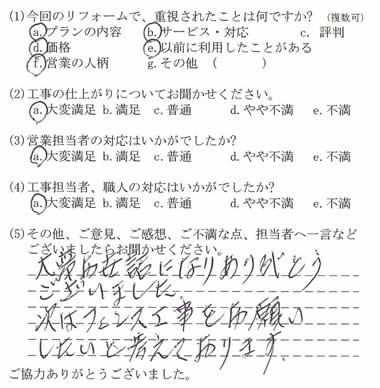 (1)今回のリフォームで、重視されたことは何ですか? (複数可)
a.プランの内容 b.サービス・対応 c. 評判
d.価格 e.以前に利用したことがある
f.営業の人柄 g.その他 ( )
(2)工事の仕上がりについてお聞かせください。
a.大変満足 b.満足 c.普通 d.やや不満 e.不満
(3)営業担当者の対応はいかがでしたか?
a.大変満足 b.満足 c.普通 d.やや不満 e.不満
(4)工事担当者、職人の対応はいかがでしたか?
a.大変満足 b.満足 c.普通 d.やや不満 e.不満
(5)その他、ご意見、ご感想、ご不満な点、担当者へ一言など
ございましたらお聞かせください。
大変お世話になりありがとう
ございました。
次はフェンス工事をお願い
したいと考えております。
ご協力ありがとうございました。